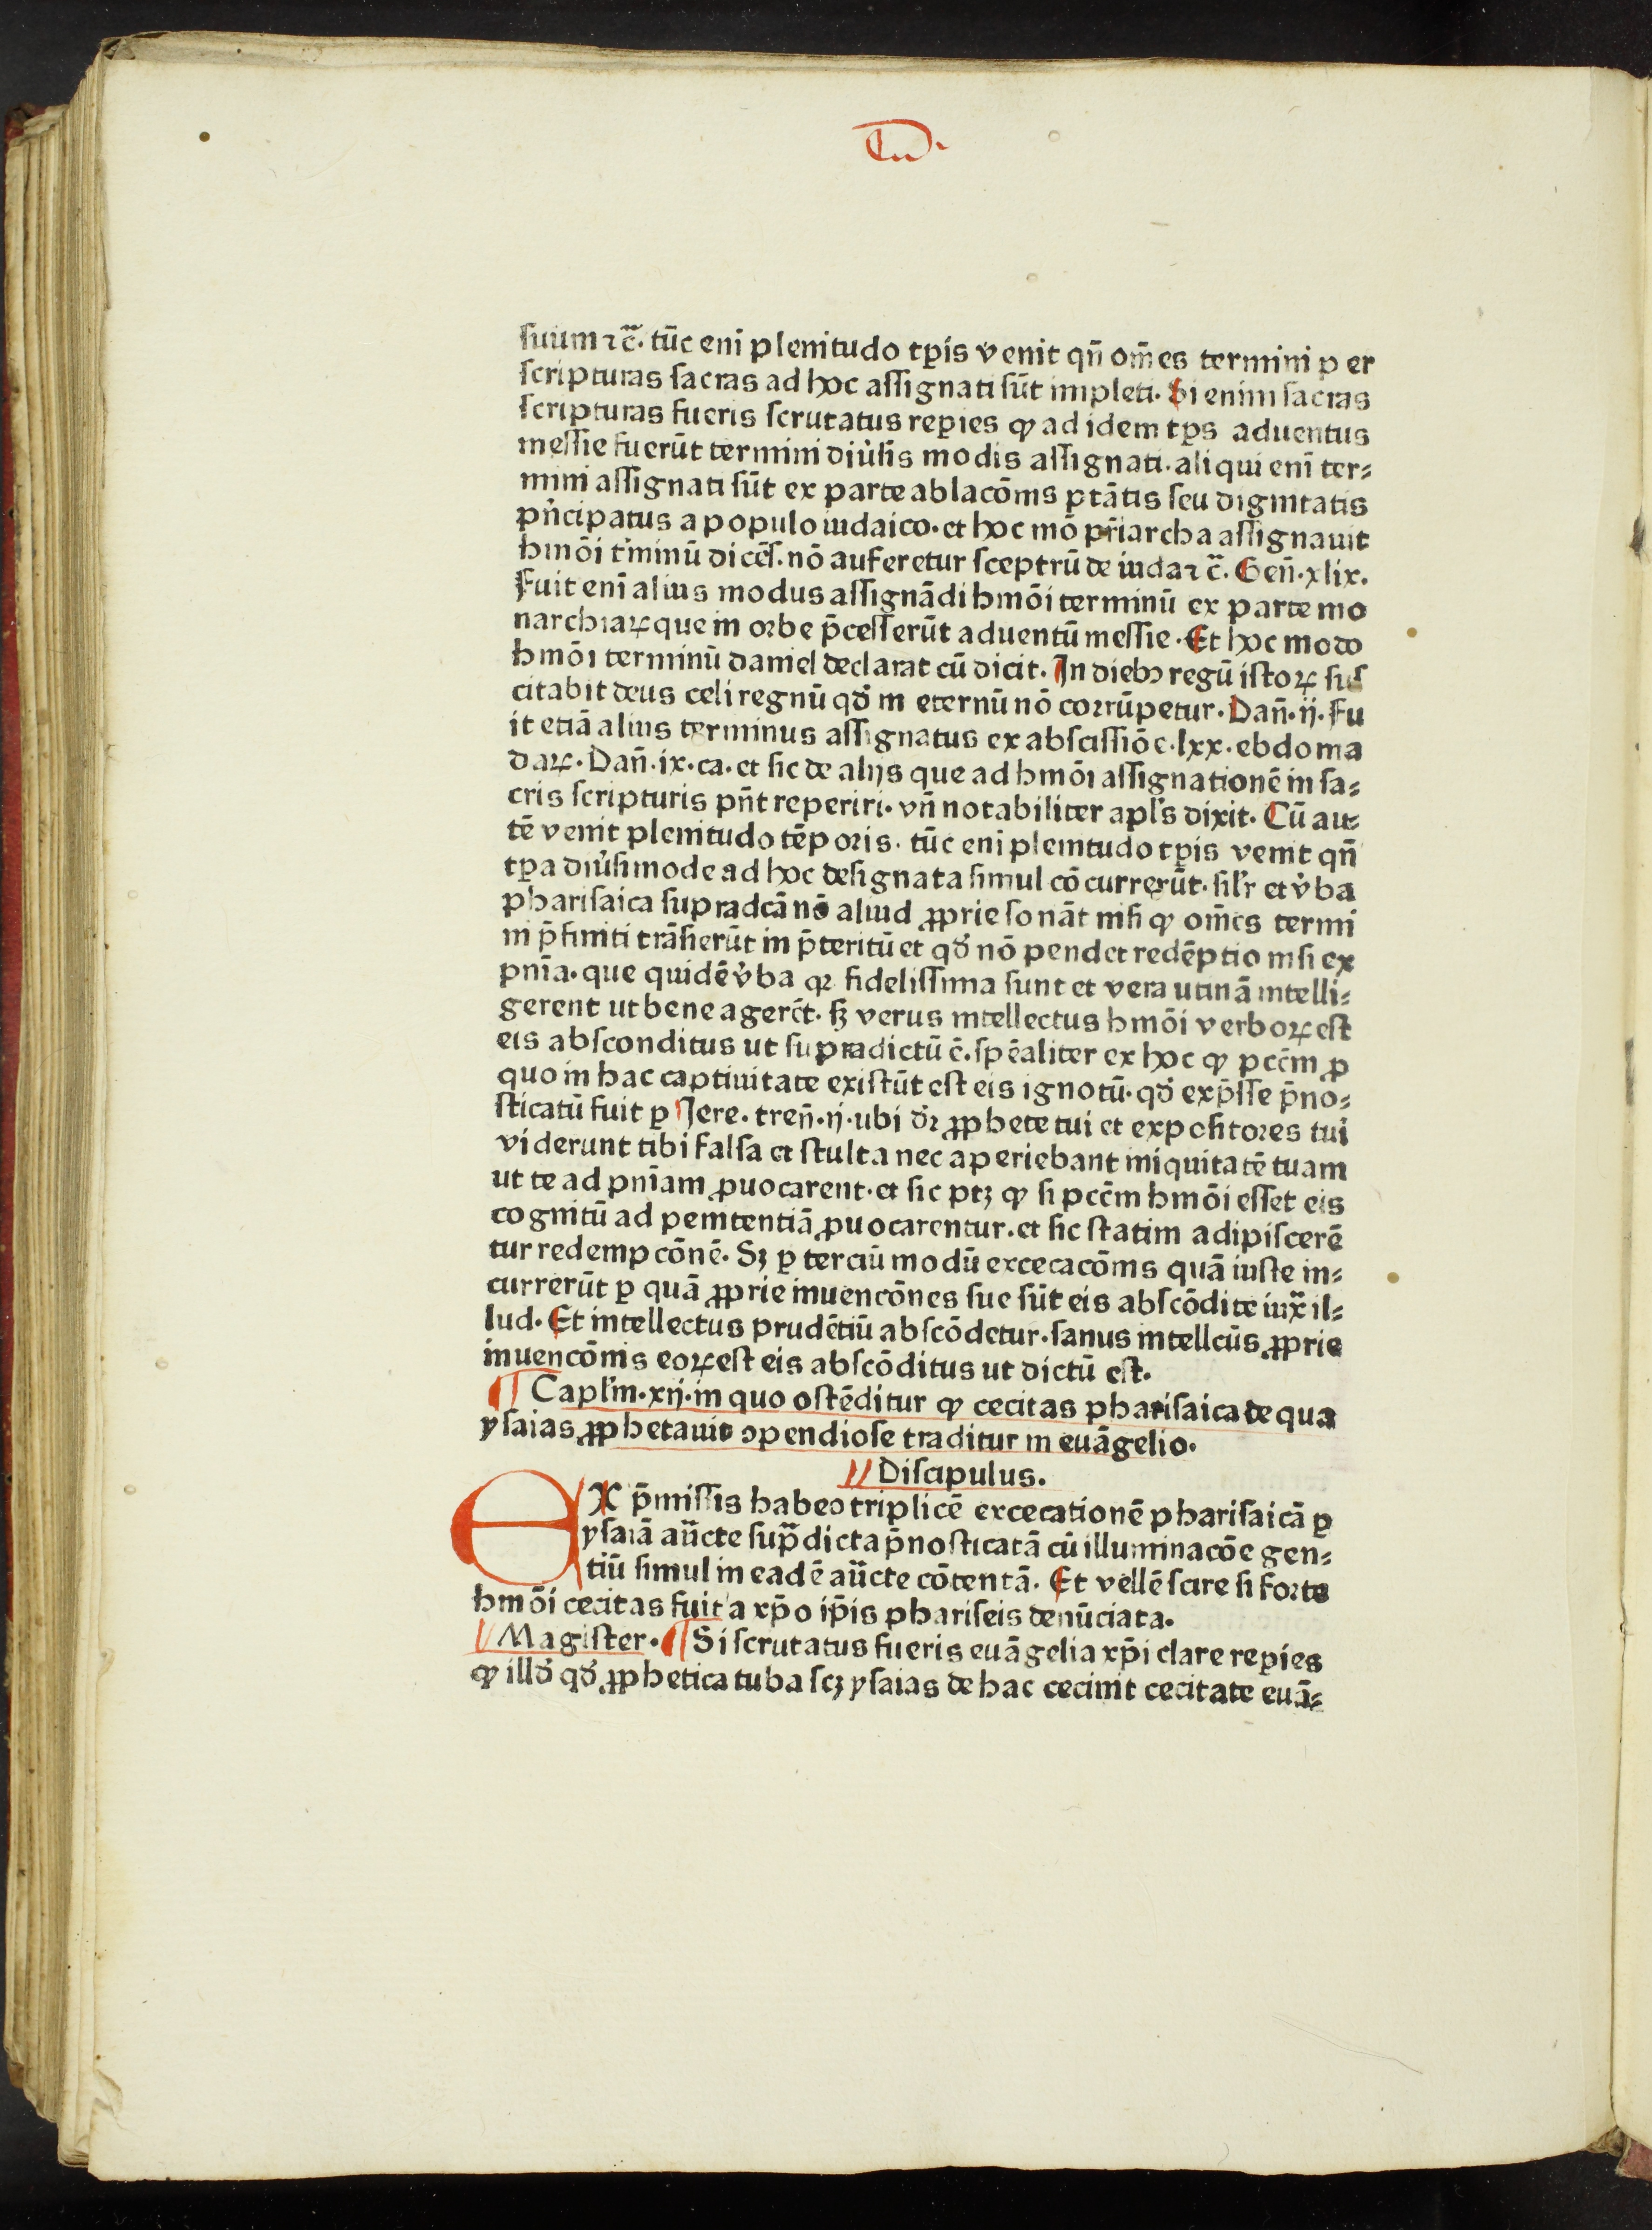 suum ⁊c̄. tūc eni plenitudo tp̄is venit qn̄ om̄es termini per
scripturas sacras ad hoc assignati sūt impleti. Si enim sacras
scripturas fueris scrutatus rep̲ies ꝙ ad idem tp̄s aduentus
messie fuerūt termini diu͛sis modis assignati. aliqui eni ter⸗
mini assignati sūt ex parte ablacōnis ptātis seu dignitatis
pn̄cipatus a populo iudaico. et hoc mō pr̄iarcha assignauit
hmōi t͛minū dicēs. nō auferetur sceptrū de iuda ⁊c̄. Gen̄. xlix.
Fuit eni alius modus assignādi hmōi terminū ex parte mo
narchiaꝝ que in orbe p̄cesserūt aduentū messie. Et hoc modo
hmōi terminū daniel declarat cū dicit. In diebꝰ regū istoꝝ sus
citabit deus celi regnū qd̓ in eternū nō corrūpetur. Dan̄. ij. Fu
it etiā alius terminus assignatus ex abscissiōe. lxx. ebdoma
daꝝ. Dan̄. ix. ca. et sic de alijs que ad hmōi assignationē in sa⸗
cris scripturis pn̄t reperiri. vn̄ notabiliter apl's dixit. Cū au⸗
tē venit plenitudo tēporis. tūc eni plenitudo tp̄is venit qn̄
tp̄a diu͛simode ad hoc designata simul cōcurrerūt. sil'r et v͛ba
pharisaica supradcā nō aliud ꝓprie sonāt nisi ꝙ om̄es termi
ni p̄finiti trāsierūt in p̄teritū et qd̓ nō pendet redēptio nisi ex
pnīa. que quidē v͛ba qꝛ fidelissima sunt et vera utinā intelli⸗
gerent ut bene agerēt. sꝫ verus intellectus hmōi verboꝝ est
eis absconditus ut supradictū ē. spēaliter ex hoc ꝙ pccm̄ ꝓ
quo in hac captiuitate existūt est eis ignotū. qd̓ exp̄sse p̄no⸗
sticatū fuit ꝑ Jere. tren̄. ij. ubi dꝛ ꝓphete tui et expositores tui
viderunt tibi falsa et stulta nec aperiebant iniquitatē tuam
ut te ad pnīam ꝓuocarent. et sic ptꝫ ꝙ si pccm̄ hmōi esset eis
cognitū ad penitentiā ꝓuocarentur. et sic statim adipiscerē
tur redempcōnē. Sꝫ ꝑ terciū modū excecacōnis quā iuste in⸗
currerūt ꝑ quā ꝓprie inuencōnes sue sūt eis abscōdite iux̄ il⸗
lud. Et intellectus prudētiū abscōdetur. sanus intellcūs ꝓprie
inuencōnis eoꝝ est eis abscōditus ut dictū est.
¶ Capl'm. xij. in quo ostēditur ꝙ cecitas pharisaica de qua
ysaias ꝓphetauit ꝯpendiose traditur in euāgelio.
Discipulus.
EX p̄missis habeo triplicē excecationē pharisaicā ꝑ
ysaiā aūcte sup̄dicta p̄nosticatā cū illuminacōe gen⸗
tiū simul in eadē aūcte cōtentā. Et vellē scire si forte
hmōi cecitas fuit a xp̄o ip̄is phariseis denūciata.
Magister. ¶ Si scrutatus fueris euāgelia xp̄i clare rep̲ies
ꝙ illd̓ qd̓ ꝓphetica tuba scꝫ ysaias de hac cecinit cecitate euā⸗